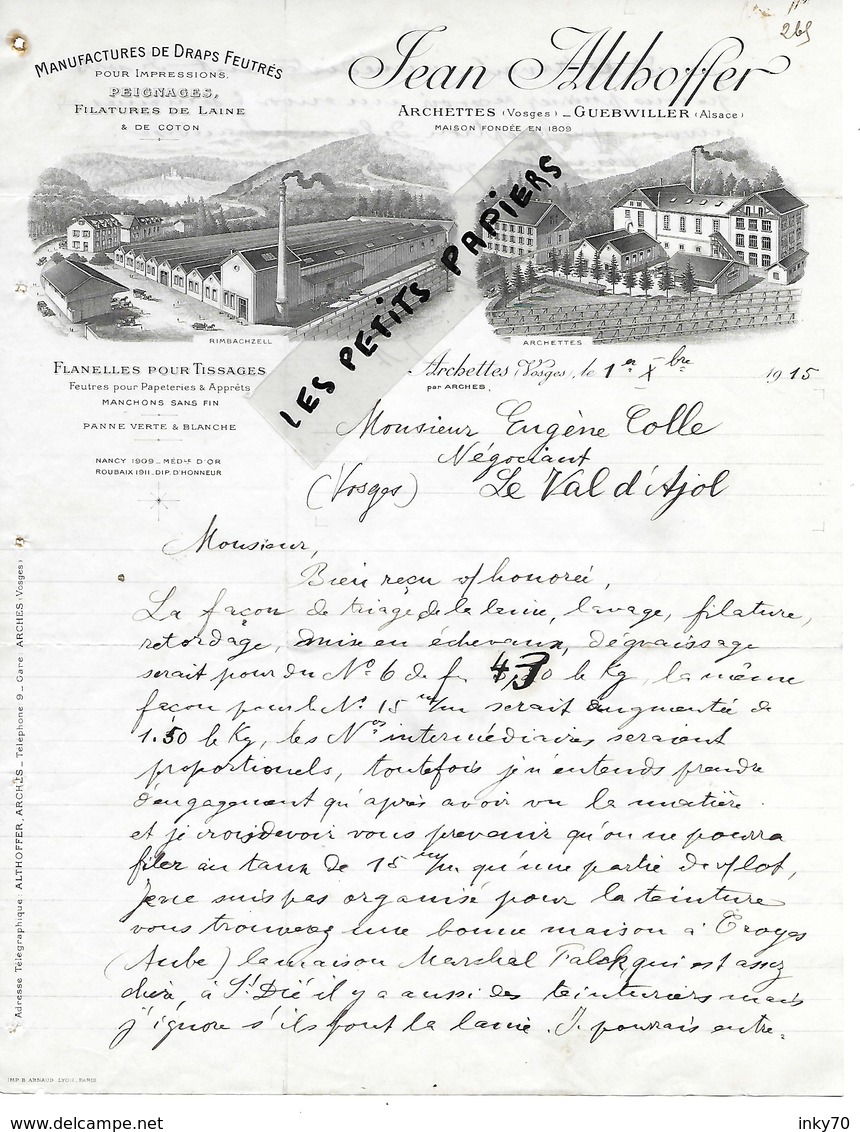 265
MANUFACTURES DE DRAPS FEUTRÉS
POUR IMPRESSIONS,
PEIGNAGES,
FILATURES DE LAINE
& DE COTON
Jean Althoffer
ARCHETTES (Vosges) _ GUEBWILLER (Alsace)
MAISON FONDÉE EN 1809
LES PETITS PAPIERS
RIMBACHZELL
ARCHETTES
FLANELLES POUR TISSAGES
Feutres pour Papeteries & Apprêts
MANCHONS SANS FIN
PANNE VERTE & BLANCHE
NANCY 1909 _ MÉDLE D'OR
ROUBAIX 1911 _ DIP. D'HONNEUR
Archettes (Vosges), le 1er Xbre 1915
par ARCHES
Monsieur Eugène Colle
Négociant
(Vosges) Le Val d'Ajol
Monsieur,
Bien reçu v/ honorée,
La façon de triage de la laine, lavage, filature,
retordage, mise en écheveaux, dégraissage
serait pour du No 6 de f. le Kg, la même
façon pour le No 15 m/m serait augmentée de
1.50 le Kg, les Nos intermédiaires seraient
proportionels, toutefois je n'entends prendre
d'engagement qu'après avoir vu la matière.
et je crois devoir vous prevenir qu'on ne pourra
filer au taux de 15 m/m qu'une partie de v/ lot,
Je ne suis pas organisé pour la teinture
vous trouverez une bonne maison à Troyes
(Aube) la maison Marchal Falck qui est assez
chère, à St Dié il y a aussi des teinturiers mais
j'ignore s'ils font la laine. Je pourrais entre-
Adresse Télégraphique: ALTHOFFER, ARCHES _ Téléphone 9 _ Gare ARCHES (Vosges)
IMP. B. ARNAUD LYON_PARIS
inky70